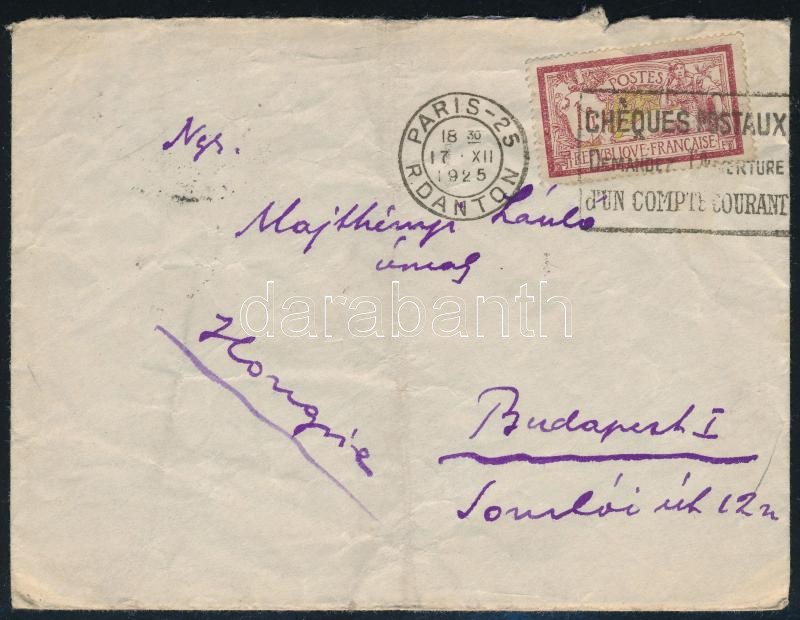 POSTES
1F
REPUBLIQUE·FRANÇAISE
PARIS-25
18 30
17·XII
1925
R DANTON
CHÈQUES POSTAUX
DEMANDEZ L'OUVERTURE
d'UN COMPTE COURANT
Ngs.
Majthényi László
úrnak
darabanth
Hongrie
Budapest I
Somlói út 12